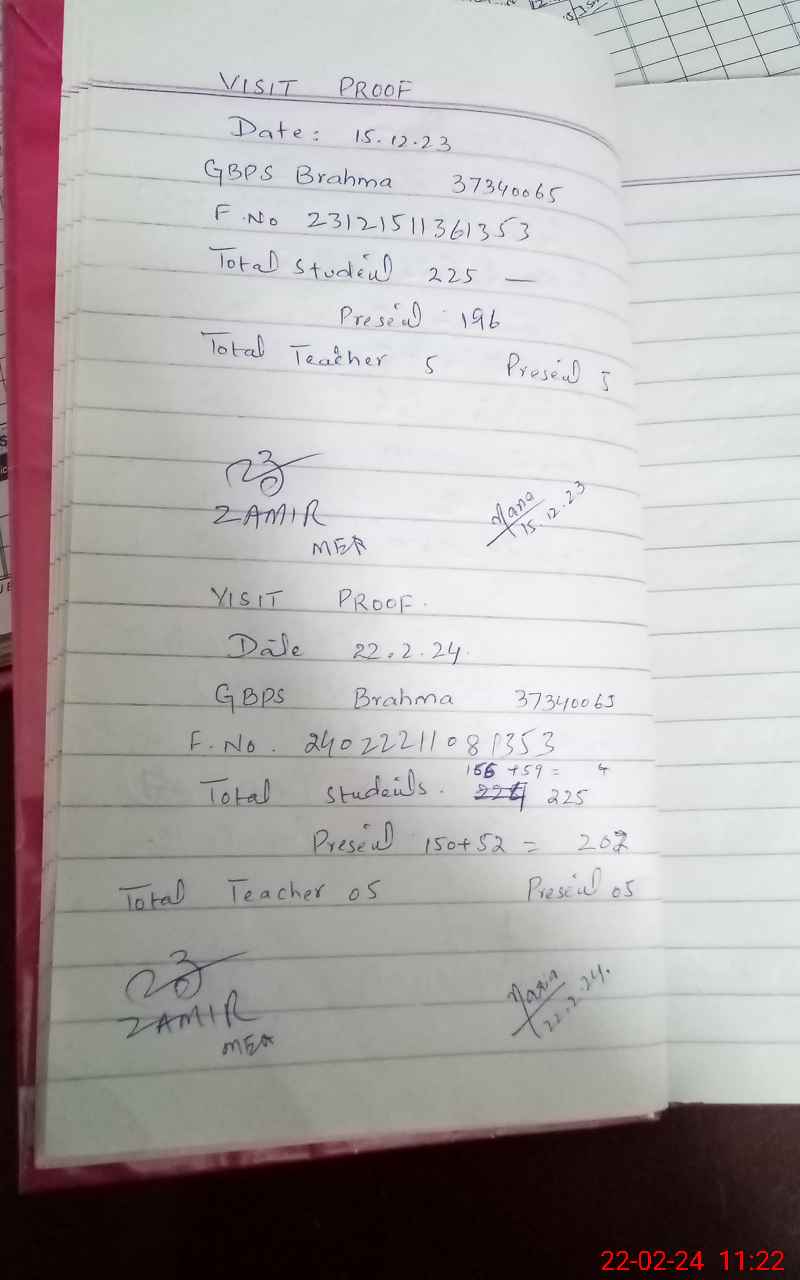 VISIT PROOF
Date: 15.12.23
GBPS Brahma 37340065
F.No 23121511361353
Total Student 225 —
Present 196
Total Teacher 5 Present 5
ZAMIR
MEA
15.12.23
VISIT PROOF.
Date 22.2.24.
GBPS Brahma 37340065
F.No. 24022211081353
166 +59 = 4
Total Students. 225
Present 150+52 = 202
Total Teacher 05 Present 05
ZAMIR
MEA
22.2.24.
22-02-24 11:22